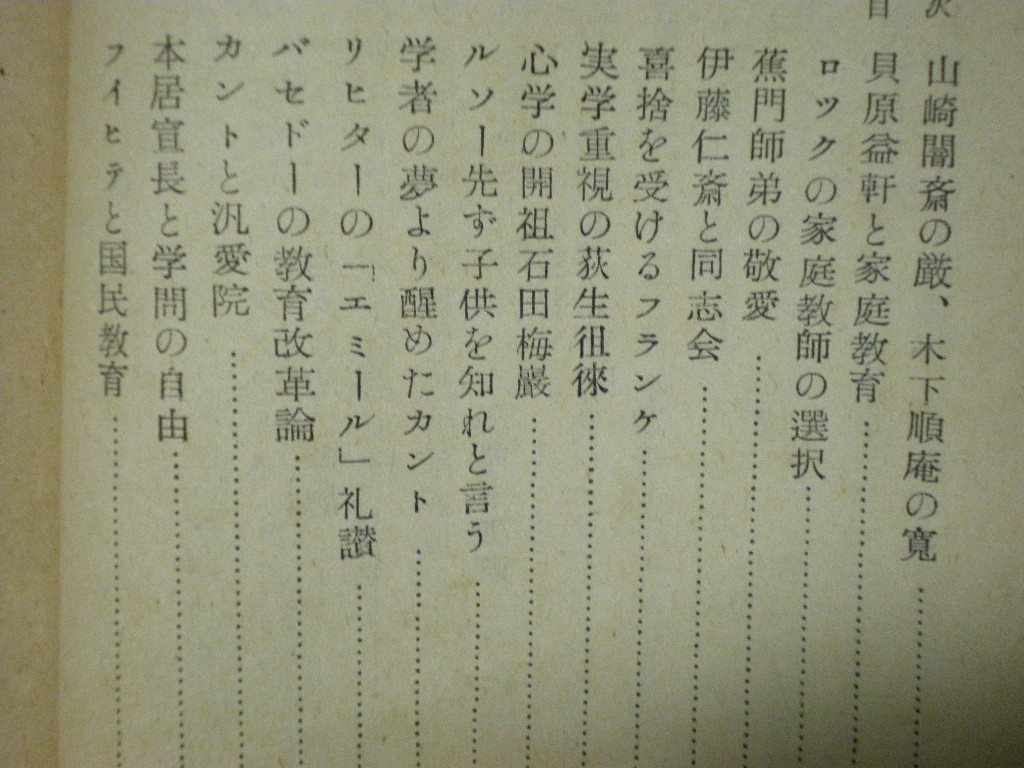 目次
山崎闇斎の厳、木下順庵の寛
貝原益軒と家庭教育
ロックの家庭教師の選択
蕉門師弟の敬愛
伊藤仁斎と同志会
喜捨を受けるフランケ
実学重視の荻生徂徠
心学の開祖石田梅巖
ルソー先ず子供を知れと言う
学者の夢より醒めたカント
リヒターの「エミール」礼讃
バセドーの教育改革論
カントと汎愛院
本居宣長と学問の自由
フイヒテと国民教育